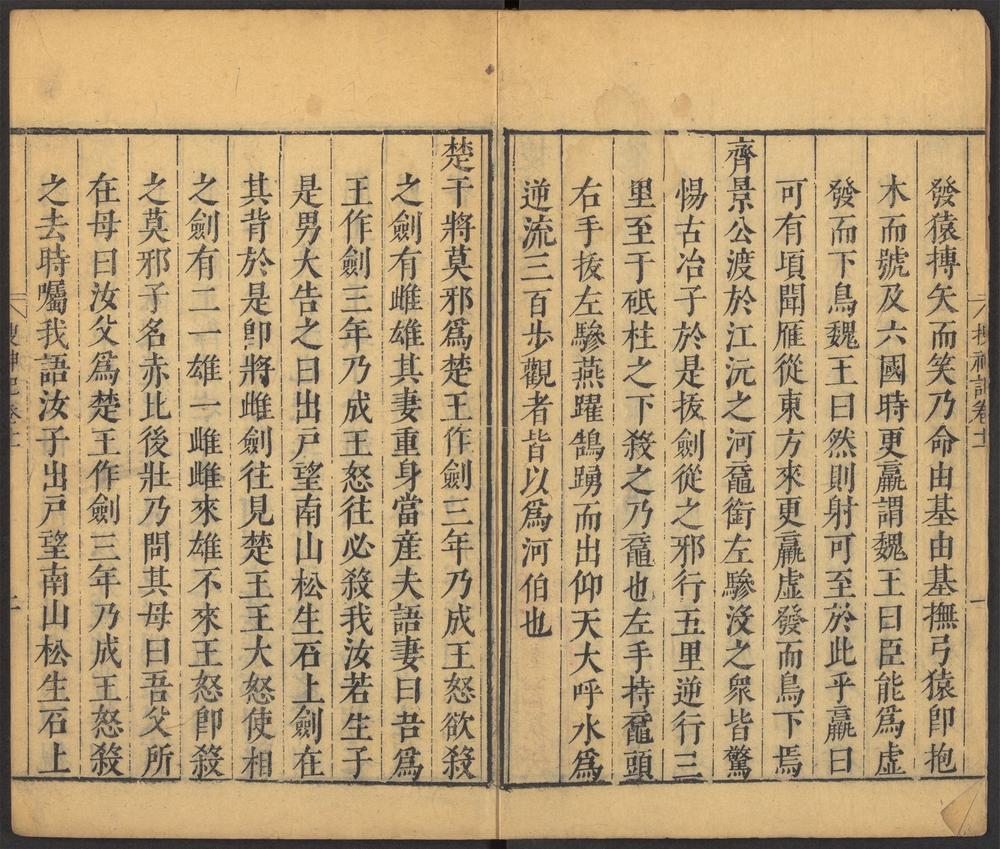 搜神記卷十一 一
發猿搏矢而笑乃命由基由基撫弓猿卽抱
木而號及六國時更羸謂魏王曰臣能爲虛
發而下鳥魏王曰然則射可至於此乎羸曰
可有頃聞雁從東方來更羸虛發而鳥下焉
齊景公渡於江沅之河黿銜左驂沒之衆皆驚
惕古冶子於是拔劍從之邪行五里逆行三
里至于砥柱之下殺之乃黿也左手持黿頭
右手拔左驂燕躍鵠踴而出仰天大呼水爲
逆流三百步觀者皆以爲河伯也
楚干將莫邪爲楚王作劍三年乃成王怒欲殺
之劍有雌雄其妻重身當産夫語妻曰吾爲
王作劍三年乃成王怒往必殺我汝若生子
是男大告之曰出戶望南山松生石上劍在
其背於是卽將雌劍往見楚王王大怒使相
之劍有二一雄一雌雌來雄不來王怒卽殺
之莫邪子名赤比後壯乃問其母曰吾父所
在母曰汝父爲楚王作劍三年乃成王怒殺
之去時囑我語汝子出戶望南山松生石上